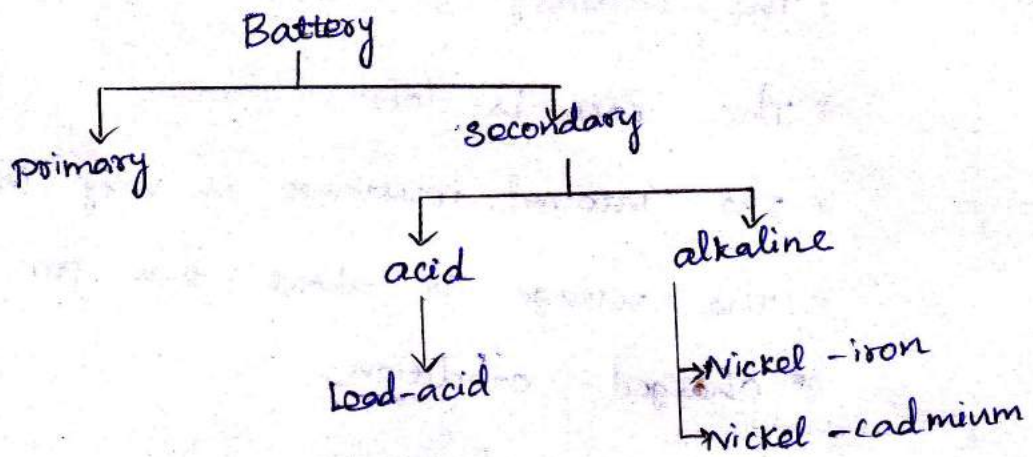 Battery
primary
secondary
acid
alkaline
Lead-acid
Nickel -iron
Nickel -cadmium